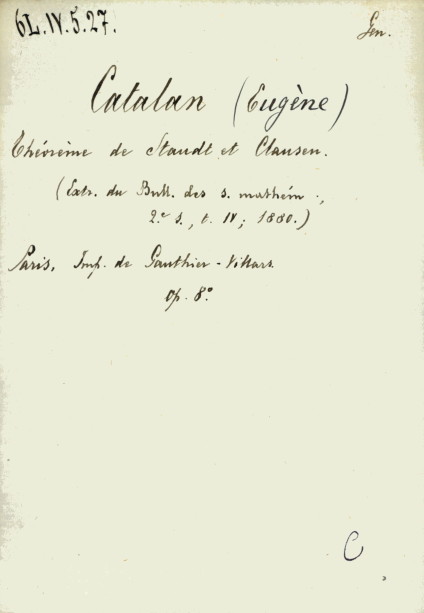 6L.IV.5.27.
Gen.
Catalan (Eugène)
Théorème de Staudt et Clausen.
(Extr. du Bull. des s. mathém.,
2.e s., t. IV; 1880.)
Paris, Imp. de Gauthier-Villars.
op. 8.°
C